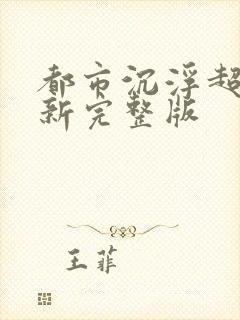 都市沉浮超
新完整版
王菲